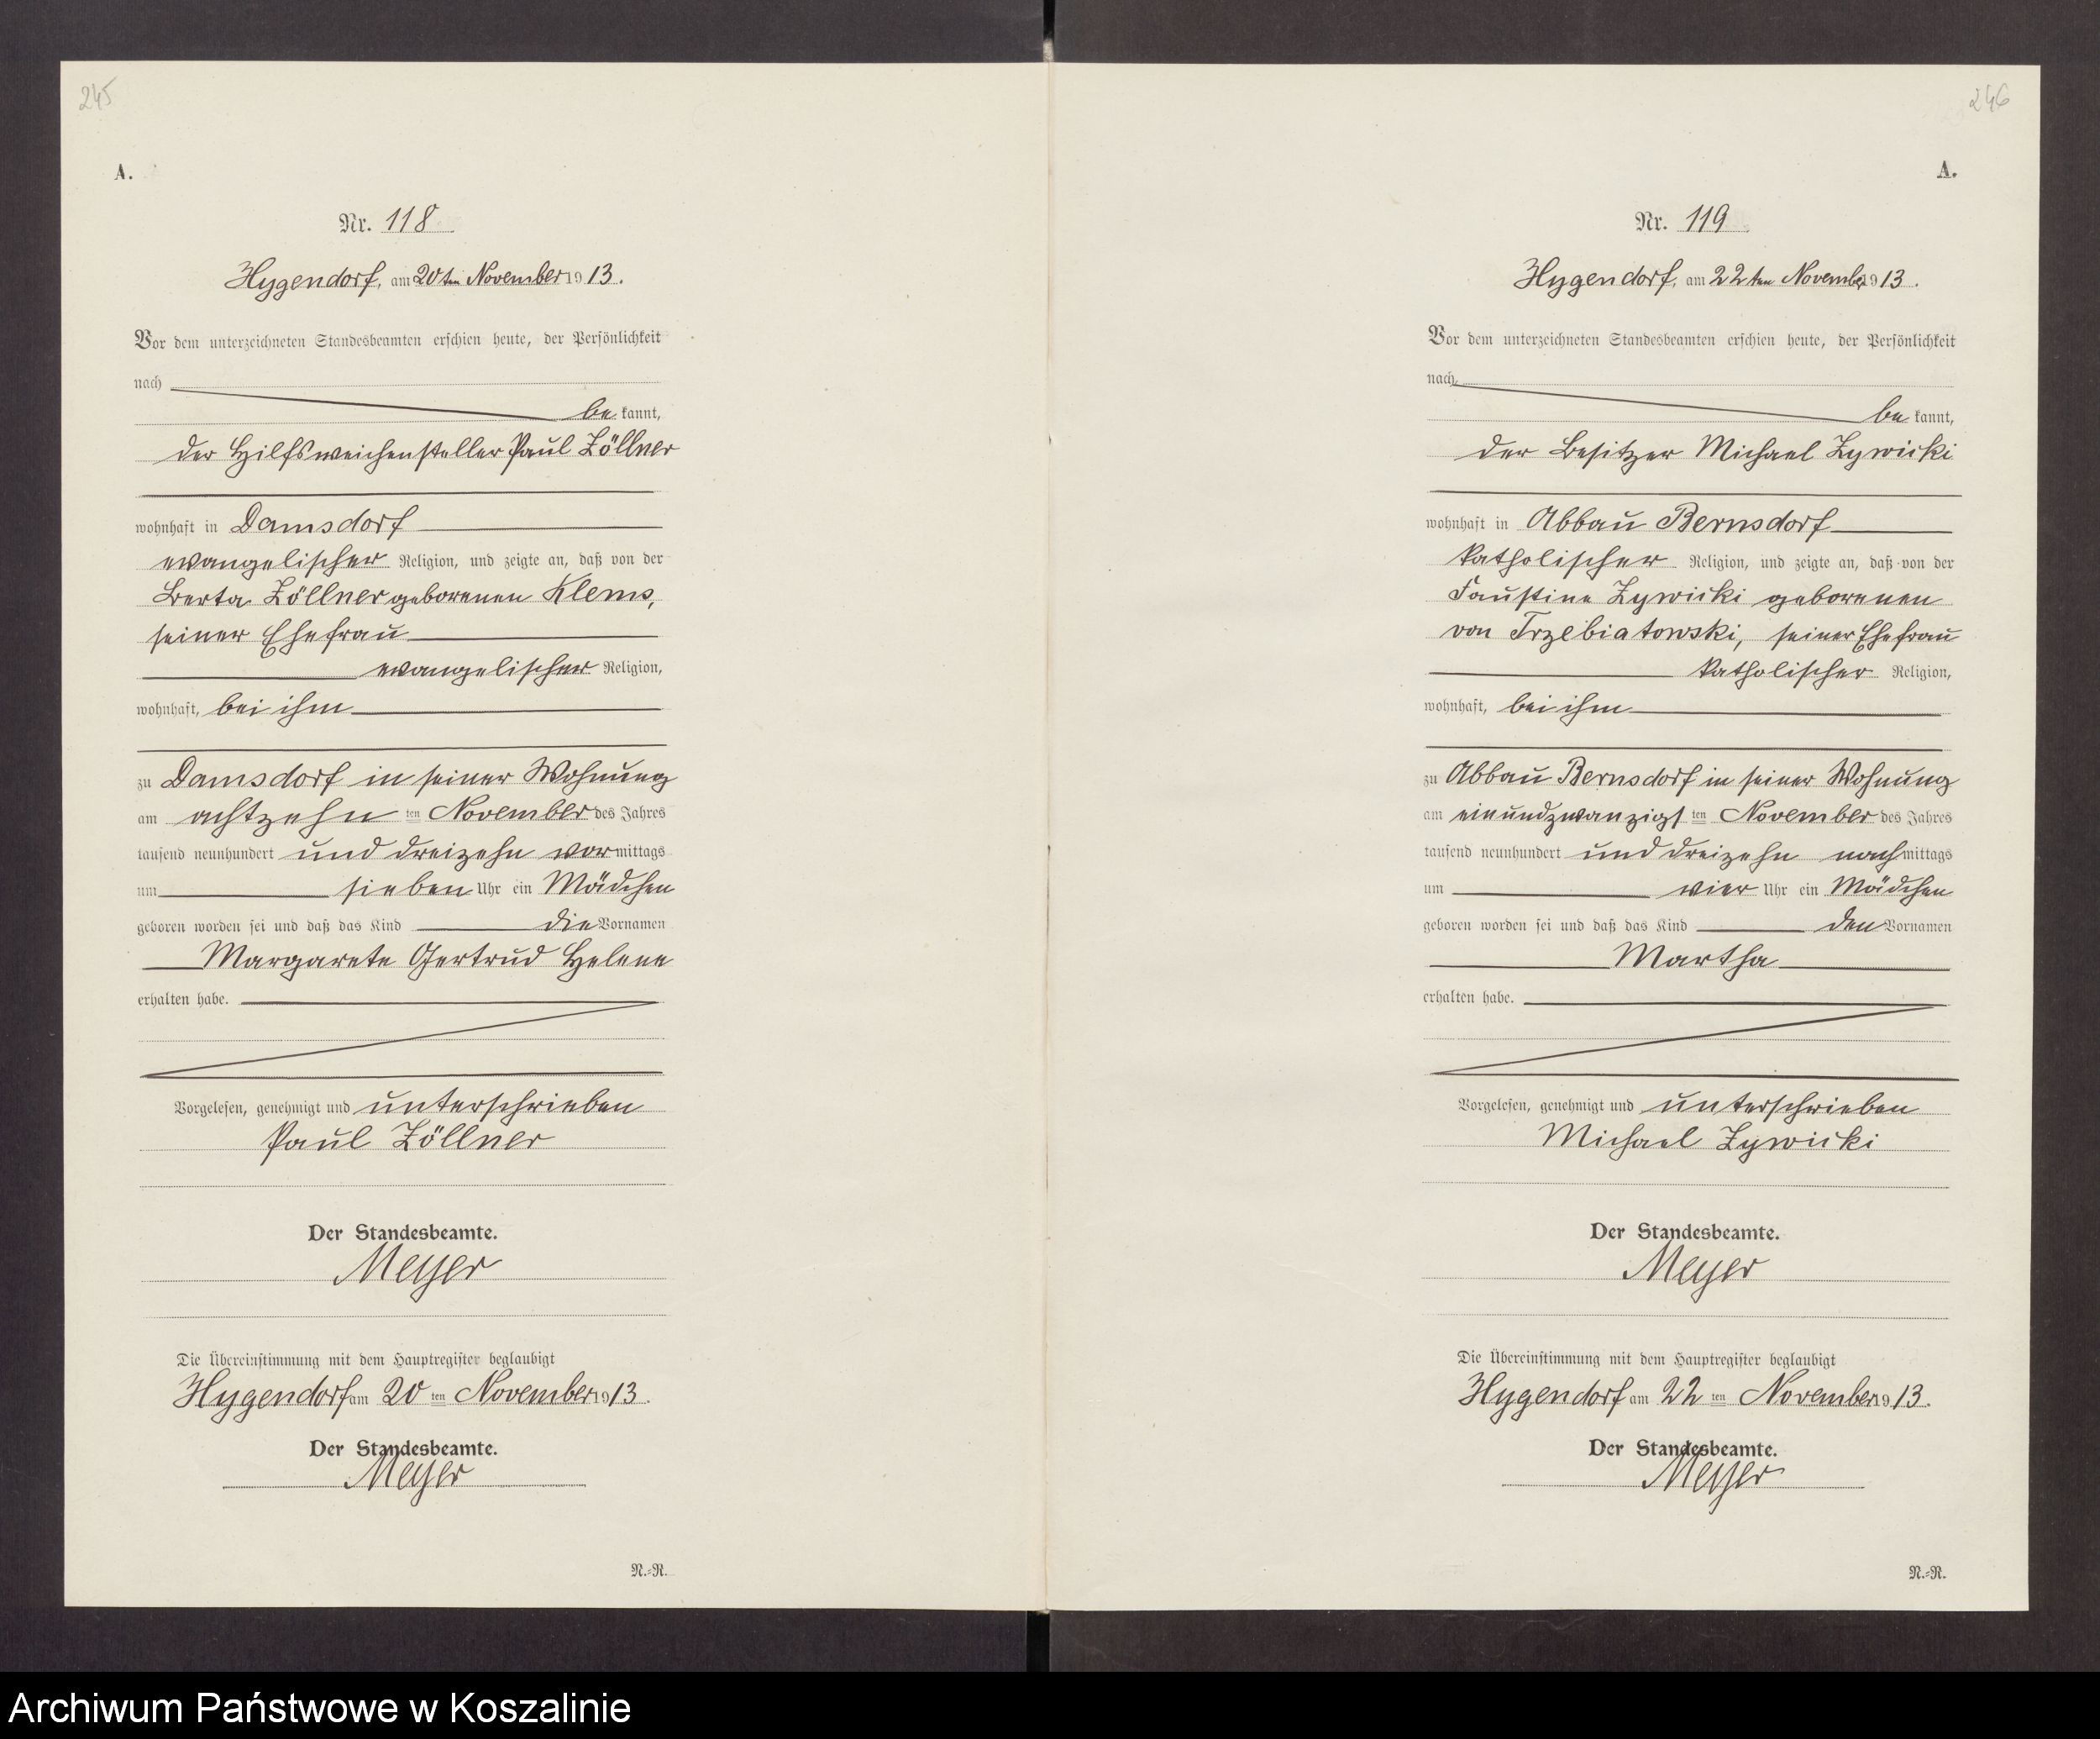 245
A.
Nr. 118
Hygendorf, am 20ten November 1913.
Vor dem unterzeichneten Standesbeamten erschien heute, der Persönlichkeit
nach
be kannt,
der Hilfsweichensteller Paul Zöllner
wohnhaft in Damsdorf
evangelischer Religion, und zeigte an, daß von der
Berta Zöllner geborenen Klems,
seiner Ehefrau
evangelischer Religion,
wohnhaft, bei ihm
zu Damsdorf in seiner Wohnung
am achtzehn ten November des Jahres
tausend neunhundert und dreizehn vormittags
um sieben Uhr ein Mädchen
geboren worden sei und daß das Kind die Vornamen
Margarete Gertrud Helene
erhalten habe.
Vorgelesen, genehmigt und unterschrieben
Paul Zöllner
Der Standesbeamte.
Meyer
Die Übereinstimmung mit dem Hauptregister beglaubigt
Hygendorf am 20 ten November 1913.
Der Standesbeamte.
Meyer
N.=R.
246
A.
Nr. 119
Hygendorf, am 22ten November 1913.
Vor dem unterzeichneten Standesbeamten erschien heute, der Persönlichkeit
nach
be kannt,
der Besitzer Michael Zywicki
wohnhaft in Abbau Bernsdorf
katholischer Religion, und zeigte an, daß von der
Faustine Zywicki geborenen
von Trzebiatowski, seiner Ehefrau
katholischer Religion,
wohnhaft, bei ihm
zu Abbau Bernsdorf in seiner Wohnung
am einundzwanzigsten November des Jahres
tausend neunhundert und dreizehn nachmittags
um vier Uhr ein Mädchen
geboren worden sei und daß das Kind den Vornamen
Martha
erhalten habe.
Vorgelesen, genehmigt und unterschrieben
Michael Zywicki
Der Standesbeamte.
Meyer
Die Übereinstimmung mit dem Hauptregister beglaubigt
Hygendorf am 22 ten November 1913.
Der Standesbeamte.
Meyer
N.=R.
Archiwum Państwowe w Koszalinie